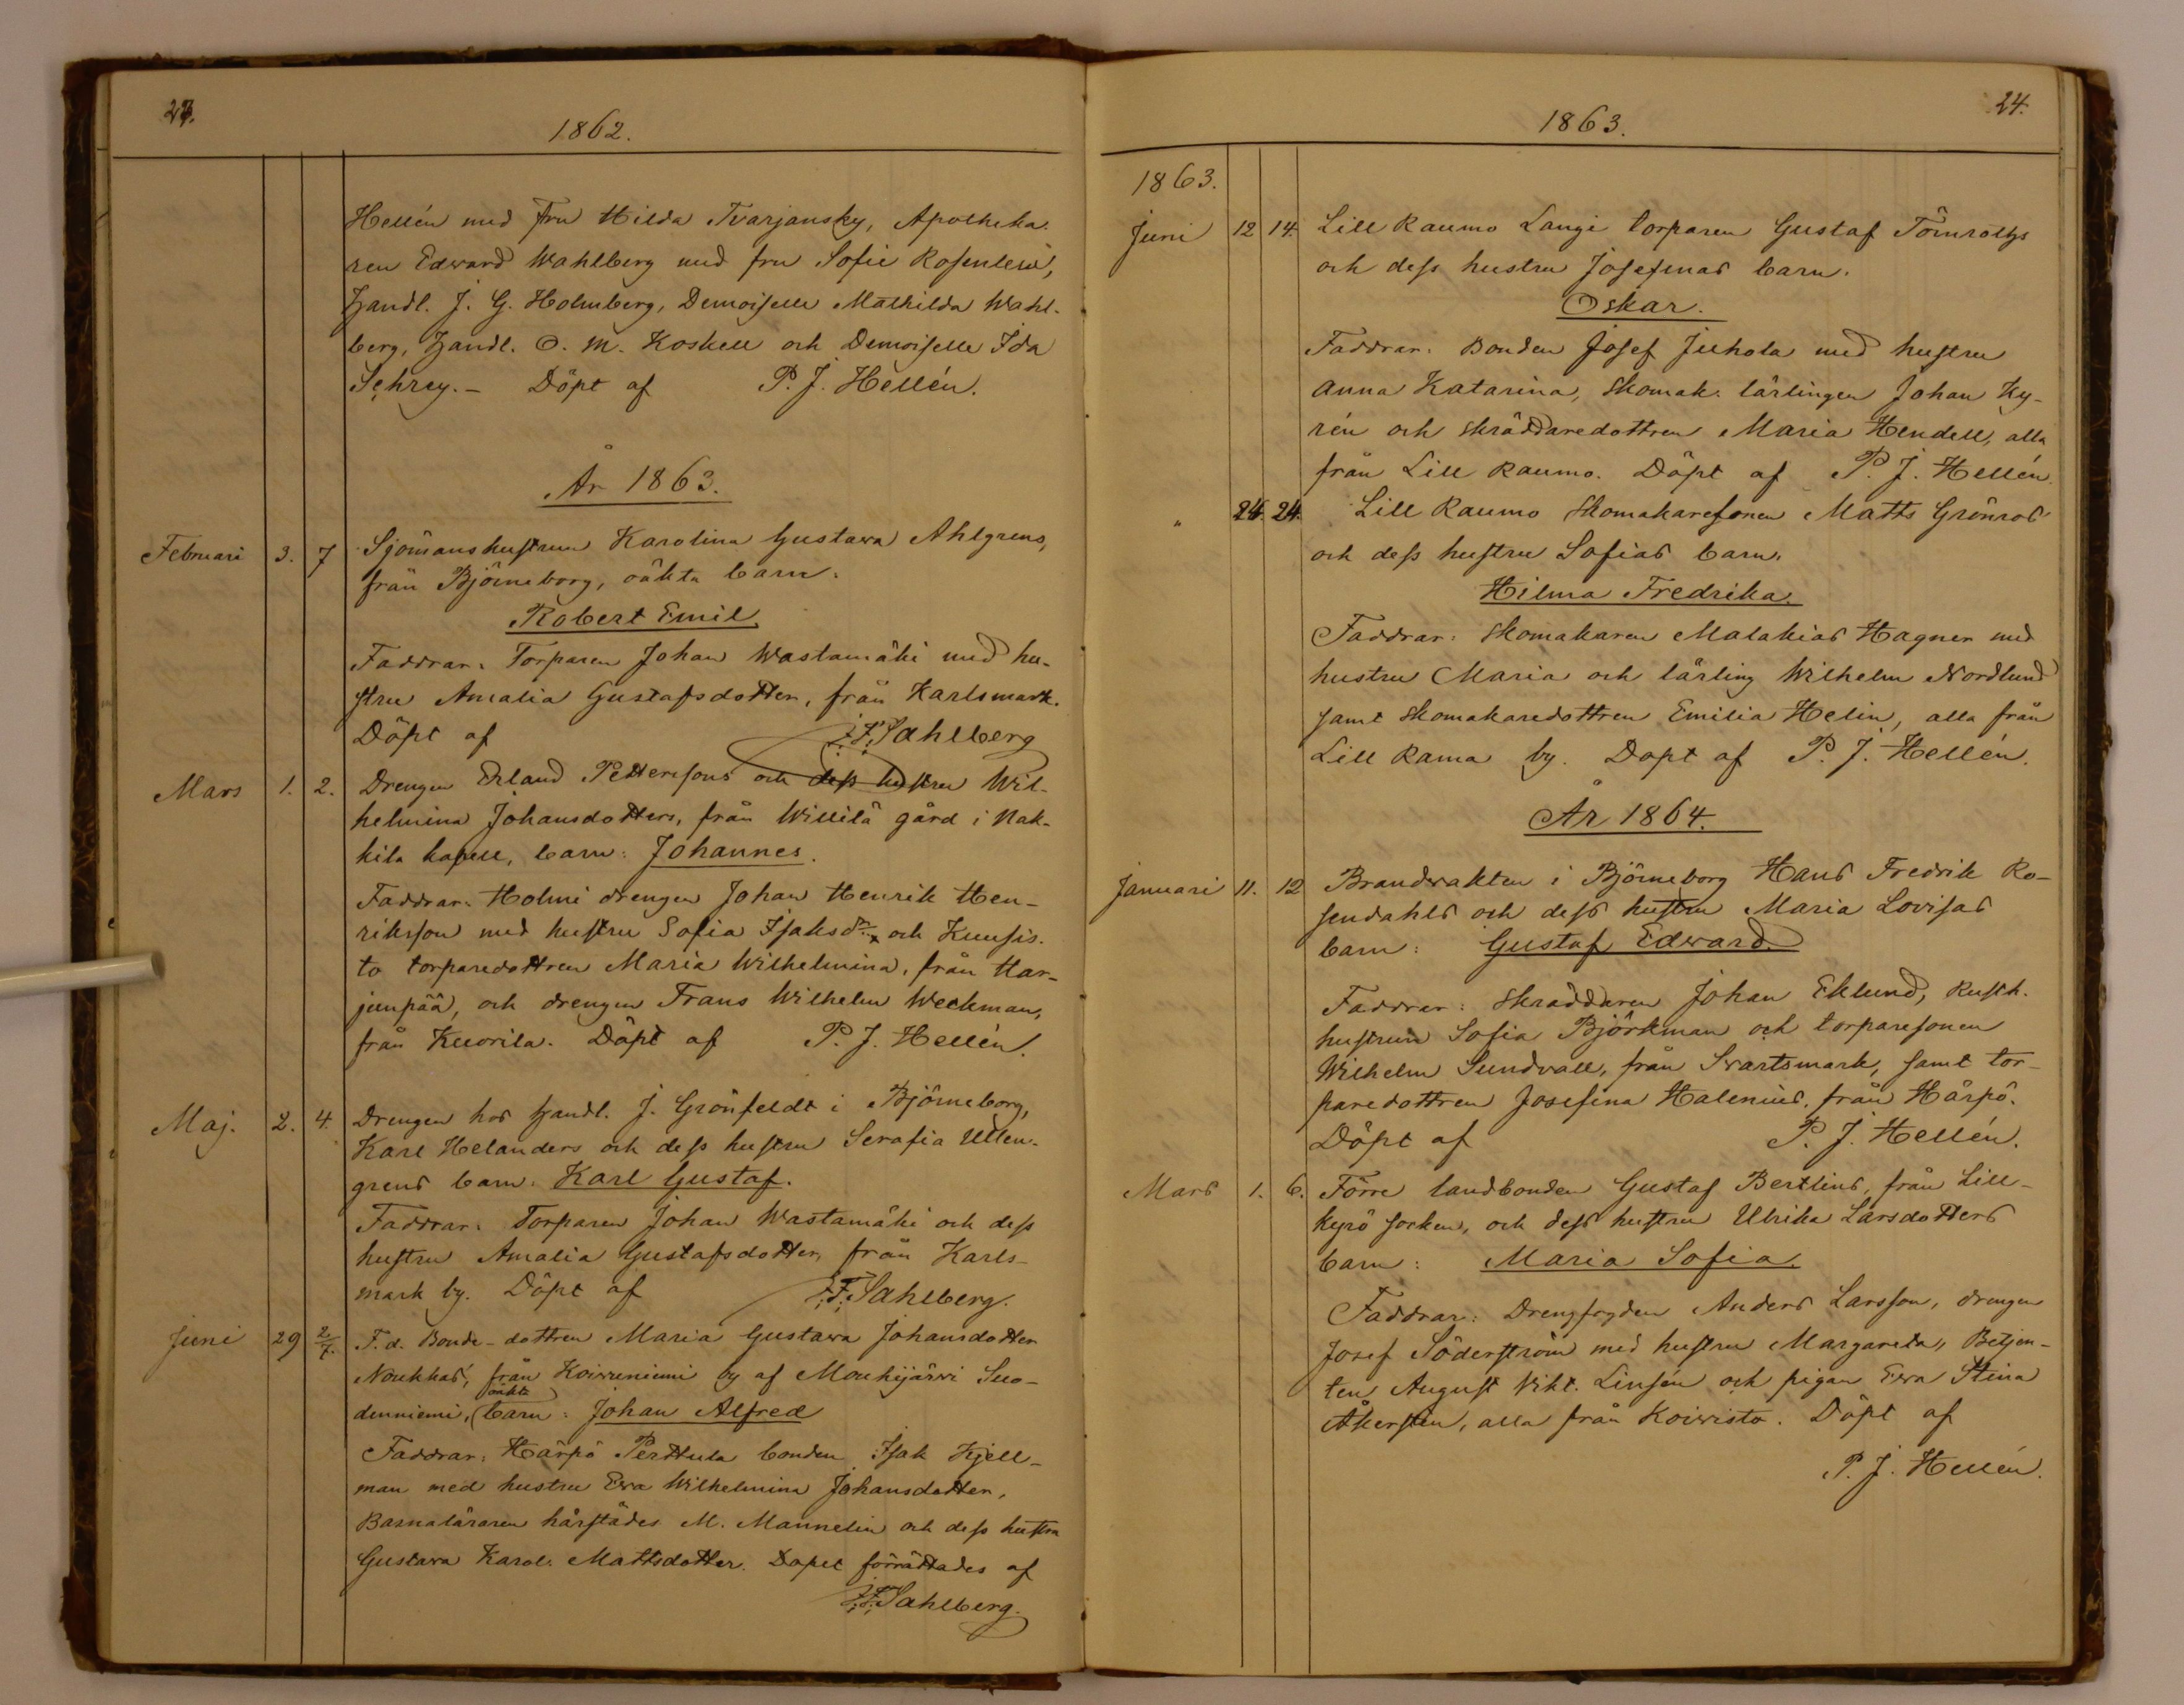 23.
1862.
Hellén med fru Hilda Tvarjansky, Apotheka-
ren Edward Wahlberg med fru Sofie Rosenlew,
Handl. J. G. Holmberg, Demoiselle Mathilda Wahl-
berg, Handl. O. M. Koskell och Demoiselle Ida
Schrey. – Döpt af P. J. Hellén.
År 1863.
Februari 3. 7 Sjömanshustrun Karolina Gustava Ahlgrens,
från Björneborg, oäkta barn:
Robert Emil.
Faddrar: Torparen Johan Wastamäki med hu-
stru Amalia Gustafsdotter, från Karlsmark.
Döpt af F. F. Sahlberg
Mars 1. 2. Drengen Erland Pettersons och dess hustru Wil-
helmina Johansdotters, från Willilä gård i Nak-
kila kapell, barn: Johannes.
Faddrar: Holmi drengen Johan Henrik Hen-
riksson med hustru Sofia Isaksdr och Kuusis-
to torparedottren Maria Wilhelmina, från Har-
junpää, och drengen Frans Wilhelm Weckman,
från Kuorila. Döpt af P. J. Hellén.
Maj. 2. 4. Drengen hos Handl. J. Grönfeldt i Björneborg,
Karl Helanders och dess hustru Serafia Ullen-
grens barn: Karl Gustaf.
Faddrar: Torparen Johan Wastamäki och dess
hustru Amalia Gustafsdotter, från Karls-
mark by. Döpt af F. F. Sahlberg.
Juni 29 2/7. F. d. Bonde-dottren Maria Gustava Johansdotter
Noukkas, från Koivuniemi by af Mouhijärvi Suo-
oäkta
denniemi, barn: Johan Alfred
Faddrar: Härpö Perttula bonden Isak Kjell-
man med hustru Eva Wilhelmina Johansdotter,
Barnaläraren härstädes M. Mannelin och dess hustru
Gustava Karol. Mattsdotter. Dopet förrättades af
F. F. Sahlberg.
24.
1863.
1863.
Juni 12 14. Lill Raumo Langi torparen Gustaf Törnroths
och dess hustru Josefinas barn:
Oskar.
Faddrar: Bonden Josef Juhola med hustru
Anna Katarina, Skomak. lärlingen Johan Ky-
rén och skräddaredottren Maria Hendell, alla
från Lill Raumo. Döpt af P. J. Hellén.
" 24. 24. Lill Raumo Skomakaresonen Matts Grönros
och dess hustru Sofias barn:
Hilma Fredrika.
Faddrar: Skomakaren Malakias Hagner med
hustru Maria och lärling Wilhelm Nordlund
samt Skomakaredottren Emilia Helin, alla från
Lill Rama by. Döpt af P. J. Hellén.
År 1864.
Januari 11. 12 Brandvakten i Björneborg Hans Fredrik Ro-
sendahls och dess hustru Maria Lovisas
barn: Gustaf Edward.
Faddrar: Skräddaren Johan Eklund, Rusth.
hustrun Sofia Björkman och torparesonen
Wilhelm Sundvall, från Svartsmark, samt tor-
paredottren Josefina Halenius, från Härpö.
Döpt af P. J. Hellén.
Mars 1. 6. Förre landbonden Gustaf Bertlins, från Lill-
kyrö socken, och dess hustru Ulrika Larsdotters
barn: Maria Sofia.
Faddrar: Drengfogden Anders Larsson, drengen
Josef Söderström med hustru Margareta, Betjen-
ten August Vikt. Linsén och pigan Eva Stina
Åkersten, alla från Koivisto. Döpt af
P. J. Hellén.